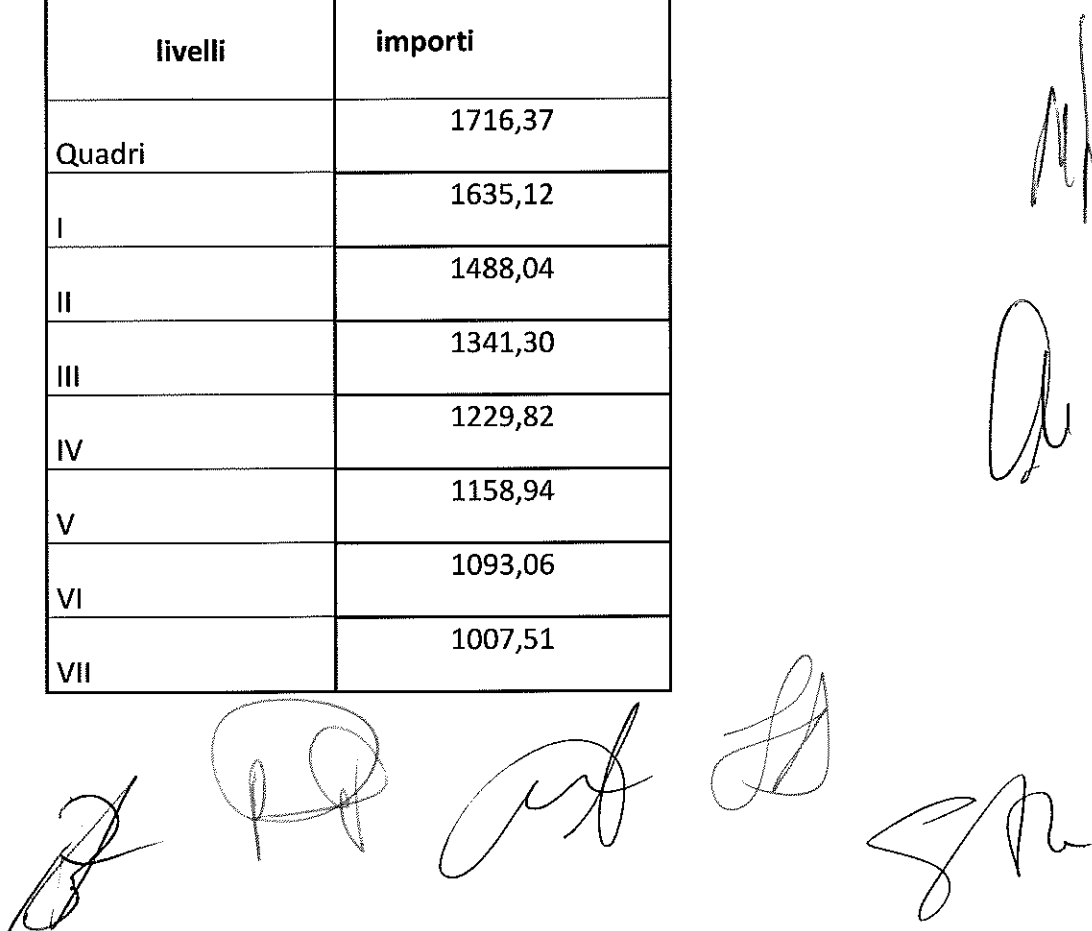 livelli importi
Quadri 1716,37
I 1635,12
II 1488,04
III 1341,30
IV 1229,82
V 1158,94
VI 1093,06
VII 1007,51